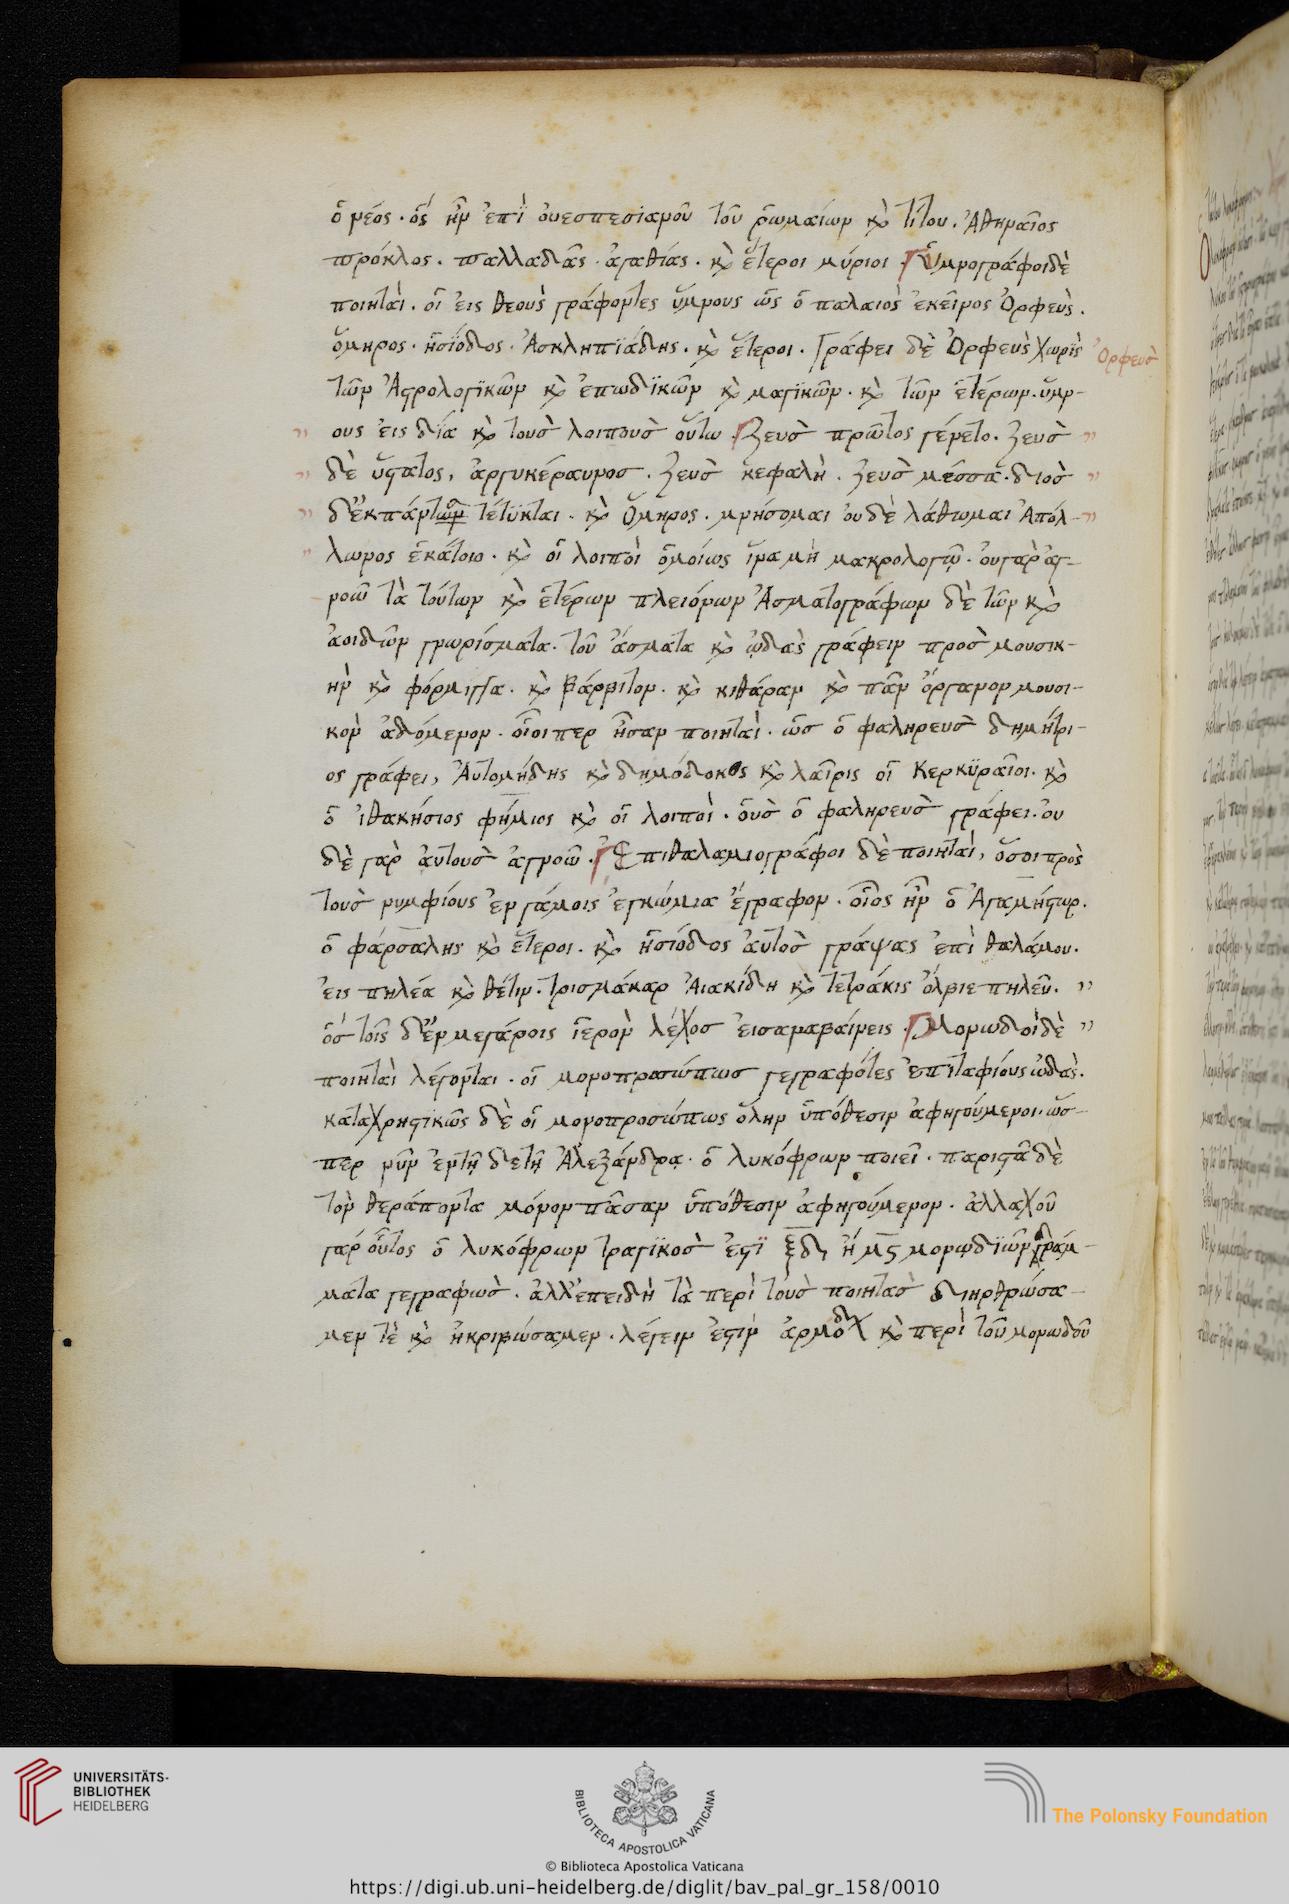 ὁ νέος· ὃς ἦν ἐπὶ οὐεσπεσιανοῦ τοῦ ῥωμαίων κὶ τίτου. Ἀθηναῖος
πρόκλος. παλλαδᾶς. ἀγαθίας. κὶ ἕτεροι μύριοι. Ὑμνογράφοι δὲ
ποιηταὶ. οἱ εἰς θεοὺς γράφοντες ὕμνους ὡς ὁ παλαιὸς ἐκεῖνος Ὀρφεὺς.
ὅμηρος. ἡσίοδος. Ἀσκληπϊάδης. κὶ ἕτεροι. Γράφει δὲ Ὀρφεὺς χωρὶς
Ὀρφεὺσ
τῶν Ἀστρολογϊκῶν κὶ ἐπωδϊκῶν κὶ μαγϊκῶν. κὶ τῶν ἑτέρων. ὕμν-
ους εἰς δία κὶ τοὺσ λοιποὺσ οὕτω. Ζεὺσ πρῶτος γένετο. ζεὺσ
δὲ ὕστατος, ἀργυκέραυνοσ. Ζεὺσ κεφαλὴ. ζεὺσ μέσσα. διὸσ
δ' ἐκ πάντων τέτϋκται. κὶ Ὅμηρος. μνήσομαι οὐδὲ λάθωμαι Ἀπόλ-
λωνος ἑκάτοιο. κὶ οἱ λοιποὶ ὁμοίως ἵνα μὴ μακρολογῶ. οὐ γὰρ ἀγ-
νοῶ τὰ τούτων κὶ ἑτέρων πλειόνων Ἀσματογράφων δὲ τῶν κὶ
ἀοιδῶν γνωρίσματα. τοῦ ἄσματα κὶ ᾠδὰς γράφειν πρὸσ μουσικ-
ὴν κὶ φόρμιγγα. κὶ βάρβιτον. κὶ κιθάραν κὶ πᾶν ὄργανον μουσι-
κὸν ἀδόμενον. οἷοι περ ἦσαν ποιηταὶ. ὡσ ὁ φαληρεὺσ δημήτρι-
ος γράφει, Αὐτομήδης κὶ δημόδοκος κὶ λαῖρις οἱ Κερκϋραῖοι. κὶ
ὁ ἰθακήσιος φήμιος κὶ οἱ λοιποὶ. οὓσ ὁ φαληρεὺσ γράφει. οὐ
δὲ γὰρ αὐτοὺσ ἀγνοῶ. Ἐπιθαλαμιογράφοι δὲ ποιηταὶ, ὅσοι πρὸς
τοὺσ νυμφίους ἐν γάμοις ἐγκώμια ἔγραφον. οἷος ἦν ὁ Ἀγαμήστωρ.
ὁ φάρσαλης κὶ ἕτεροι. κὶ ἡσίοδος αὐτὸσ γράψας ἐπὶ θαλάμου.
εἰς πηλέα κὶ θέτιν. τρισμάκαρ Αἰακίδη κὶ τετράκις ὄλβιε πηλεῦ.
ὃσ τοῖς δ' ἐν μεγάροις ἱερὸν λέχοσ εἰσαναβαίνεις. Μονωδοὶ δὲ
ποιηταὶ λέγονται. οἱ μονοπροσώπωσ γεγραφότες ἐπιταφίους ὠδὰς.
καταχρηστικῶς δὲ οἱ μονοπροσώπως ὅλην ὑπόθεσιν ἀφηγούμενοι. ὥσ-
περ νῦν ἐν τῇ δε τῇ Ἀλεξάνδρᾳ. ὁ λυκόφρων ποιεῖ. παριστᾶ δὲ
τὸν θεράποντα μόνον πᾶσαν ὑπόθεσιν ἀφηγούμενον. ἀλλαχοῦ
γάρ οὗτος ὁ λυκόφρων τραγϊκὸσ ἐστὶ ξδ, ἢ μς μονῳδϊῶν δράμ-
ματα γεγραφὼσ. ἀλλ' ἐπειδὴ τὰ περὶ τοὺσ ποιητὰσ διηρθρώσα-
μεν τὲ κὶ ἠκριβώσαμεν. λέγειν ἐστὶν κὶ περὶ τοῦ μονωδοῦ
UNIVERSITÄTS-
BIBLIOTHEK
HEIDELBERG
BIBLIOTECA APOSTOLICA VATICANA
The Polonsky Foundation
© Biblioteca Apostolica Vaticana
https://digi.ub.uni-heidelberg.de/diglit/bav_pal_gr_158/0010